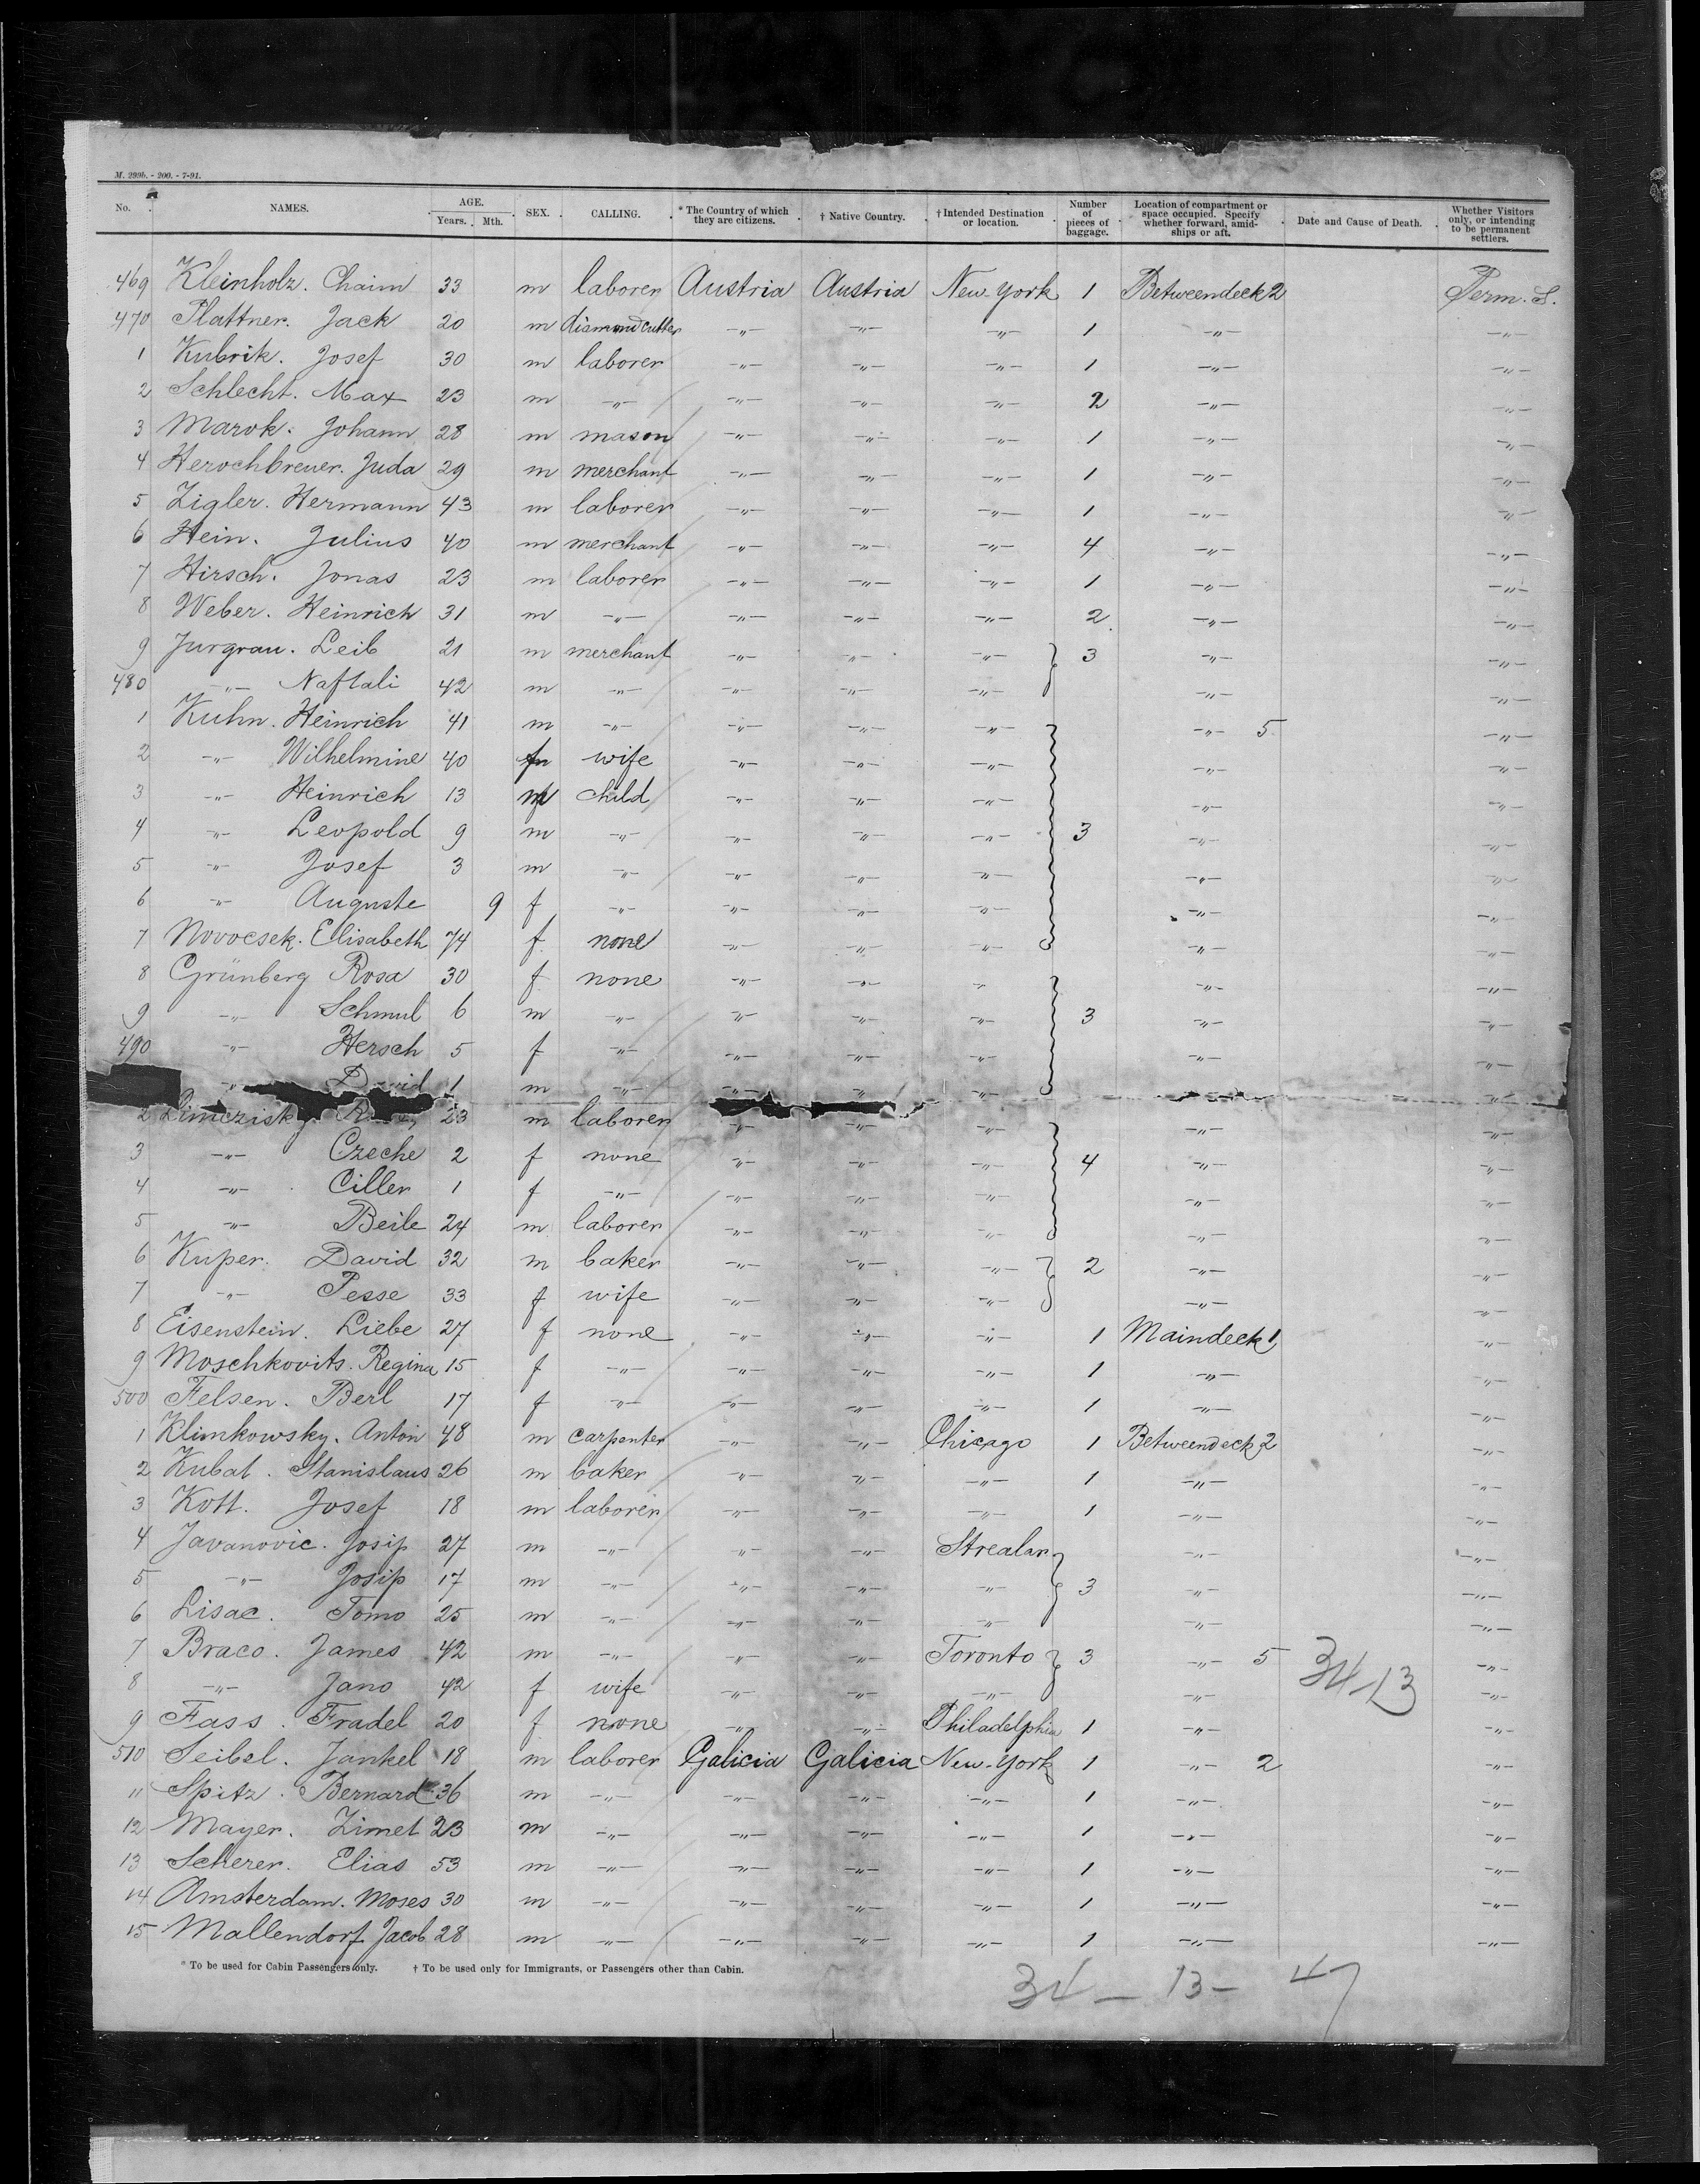 M. 299b. - 200. - 7-91.
No. NAMES. AGE. Years. Mth. SEX. CALLING. * The Country of which they are citizens. † Native Country. † Intended Destination or location. Number of pieces of baggage. Location of compartment or space occupied. Specify whether forward, amid-ships or aft. Date and Cause of Death. Whether Visitors only, or intending to be permanent settlers.
469 Kleinholz. Chaim 33 m laborer Austria Austria New-York 1 Betweendeck 2 Perm. S.
470 Plattner. Jack 20 m diamondcutter -"- -"- -"- 1 -"- -"-
1 Kubrik. Josef 30 m laborer -"- -"- -"- 1 -"- -"-
2 Schlecht. Max 23 m -"- -"- -"- -"- 2 -"- -"-
3 Marok. Johann 28 m mason -"- -"- -"- 1 -"- -"-
4 Herochbreuer. Juda 29 m merchant -"- -"- -"- 1 -"- -"-
5 Zigler. Hermann 43 m laborer -"- -"- -"- 1 -"- -"-
6 Hein. Julius 40 m merchant -"- -"- -"- 4 -"- -"-
7 Hirsch. Jonas 23 m laborer -"- -"- -"- 1 -"- -"-
8 Weber. Heinrich 31 m -"- -"- -"- -"- 2 -"- -"-
9 Jurgrau. Leib 21 m merchant -"- -"- -"- 3 -"- -"-
480 -"- Naftali 42 m -"- -"- -"- -"- -"- -"-
1 Kuhn. Heinrich 41 m -"- -"- -"- -"- -"- 5 -"-
2 -"- Wilhelmine 40 f wife -"- -"- -"- -"- -"-
3 -"- Heinrich 13 m child -"- -"- -"- -"- -"-
4 -"- Leopold 9 m -"- -"- -"- -"- 3 -"- -"-
5 -"- Josef 3 m -"- -"- -"- -"- -"- -"-
6 -"- Auguste 9 f -"- -"- -"- -"- -"- -"-
7 Novocsek. Elisabeth 74 f none -"- -"- -"- -"- -"-
8 Grünberg Rosa 30 f none -"- -"- -"- -"- -"-
9 -"- Schmul 6 m -"- -"- -"- -"- 3 -"- -"-
490 -"- Hersch 5 f -"- -"- -"- -"- -"- -"-
-"- David 1 m -"- -"- -"- -"- -"-
2 23 m laborer -"- -"- -"- -"- -"-
3 -"- Czeche 2 f none -"- -"- -"- 4 -"- -"-
4 -"- Ciller 1 f -"- -"- -"- -"- -"- -"-
5 -"- Beile 24 m laborer -"- -"- -"- -"- -"-
6 Kuper. David 32 m baker -"- -"- -"- 2 -"- -"-
7 -"- Pesse 33 f wife -"- -"- -"- -"- -"-
8 Eisenstein. Liebe 27 f none -"- -"- -"- 1 Maindeck 1 -"-
9 Moschkovits. Regina 15 f -"- -"- -"- -"- 1 -"- -"-
500 Felsen. Berl 17 f -"- -"- -"- -"- 1 -"- -"-
1 Klimkowsky. Anton 48 m carpenter -"- -"- Chicago 1 Betweendeck 2 -"-
2 Kubat. Stanislaus 26 m baker -"- -"- -"- 1 -"- -"-
3 Kott. Josef 18 m laborer -"- -"- -"- 1 -"- -"-
4 Javanovic. Josip 27 m -"- -"- -"- Strealar -"- -"-
5 -"- Josip 17 m -"- -"- -"- -"- 3 -"- -"-
6 Lisac. Tomo 25 m -"- -"- -"- -"- -"- -"-
7 Braco. James 42 m -"- -"- -"- Toronto 3 -"- 5 34-13 -"-
8 -"- Jano 42 f wife -"- -"- -"- -"- -"-
9 Fass. Fradel 20 f none -"- -"- Philadelphia 1 -"- -"-
510 Seibel. Jankel 18 m laborer Galicia Galicia New-York 1 -"- 2 -"-
11 Spitz. Bernard 36 m -"- -"- -"- -"- 1 -"- -"-
12 Mayer. Zimet 23 m -"- -"- -"- -"- 1 -"- -"-
13 Scherer. Elias 53 m -"- -"- -"- -"- 1 -"- -"-
14 Amsterdam. Moses 30 m -"- -"- -"- -"- 1 -"- -"-
15 Mallendorf Jacob 28 m -"- -"- -"- -"- 1 -"- -"-
* To be used for Cabin Passengers only. † To be used only for Immigrants, or Passengers other than Cabin.
34 - 13 - 47